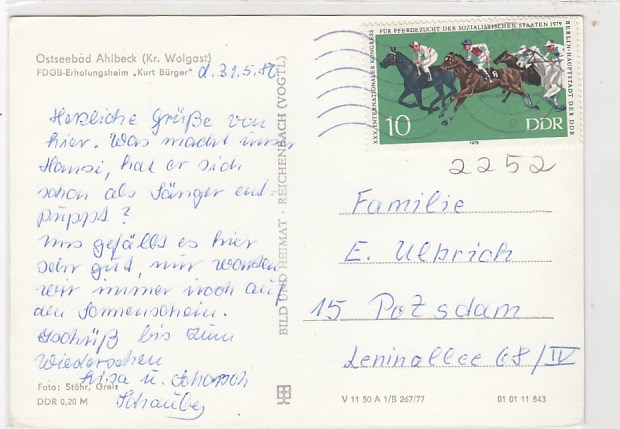 Ostseebad Ahlbeck (Kr. Wolgast)
FDGB-Erholungsheim „Kurt Bürger"
d. 31.5.80
Herzliche Grüße von
hier. Was macht unser
Hansi, hat er sich
schon als Sänger ent-
puppt?
Uns gefällt es hier
sehr gut, nur warten
wir immer noch auf
den Sonnenschein.
Tschüß bis zum
Wiedersehen
u.
Foto: Stöhr, Greiz
DDR 0,20 M
BILD UND HEIMAT · REICHENBACH (VOGTL)
XXX. INTERNATIONALER KONGRESS
FÜR PFERDEZUCHT DER SOZIALISTISCHEN STAATEN 1979
BERLIN-HAUPTSTADT DER DDR
10
1979
DDR
2252
Familie
E. Ulbrich
15 Potsdam
Leninallee 68/IV
V 11 50 A 1/B 267/77
01 01 11 843